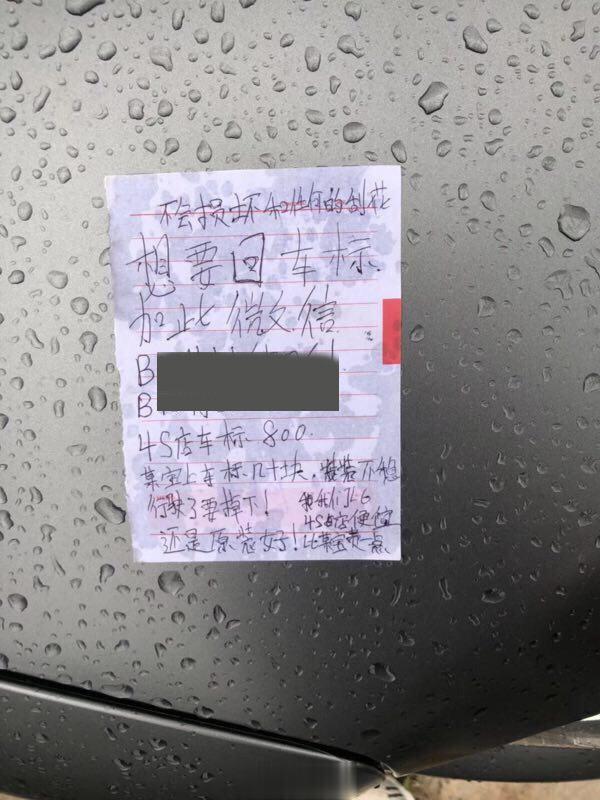 不会损坏和任何的刮花
想要回车标
加此微信
B
B
4S店车标800.
某宝上车标几十块,装不够
行驶了要掉下!
还是原装好!
我们比
4S店便宜
比某宝贵点